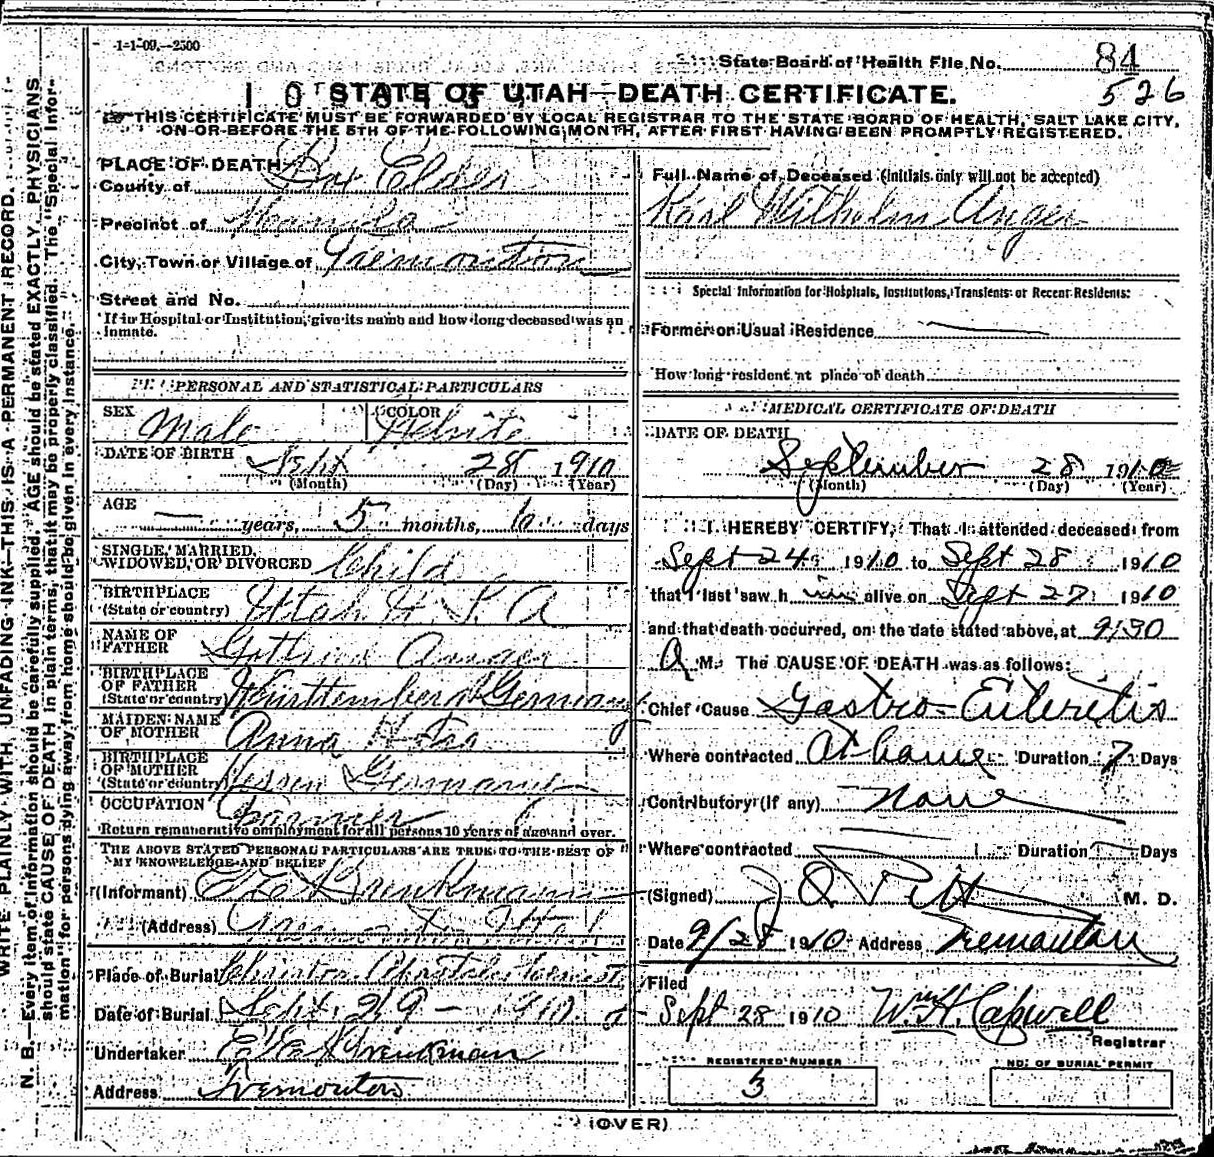 1-1-09.--2500
State Board of Health File No. 84
526
STATE OF UTAH—DEATH CERTIFICATE.
THIS CERTIFICATE MUST BE FORWARDED BY LOCAL REGISTRAR TO THE STATE BOARD OF HEALTH, SALT LAKE CITY,
ON OR BEFORE THE 5TH OF THE FOLLOWING MONTH, AFTER FIRST HAVING BEEN PROMPTLY REGISTERED.
PLACE OF DEATH
County of Box Elder
Precinct of
City, Town or Village of Tremonton
Street and No.
If in Hospital or Institution, give its name and how long deceased was an
inmate.
PERSONAL AND STATISTICAL PARTICULARS
SEX Male COLOR White
DATE OF BIRTH Sept 28 1910
(Month) (Day) (Year)
AGE — years, 5 months, days
SINGLE, MARRIED,
WIDOWED, OR DIVORCED Child
BIRTHPLACE
(State or country) Utah U. S. A
NAME OF
FATHER Anger
BIRTHPLACE
OF FATHER
(State or country) Württemberg Germany
MAIDEN NAME
OF MOTHER Anna
BIRTHPLACE
OF MOTHER
(State or country) Hessen Germany
OCCUPATION Farmer
Return remunerative employment for all persons 10 years of age and over.
THE ABOVE STATED PERSONAL PARTICULARS ARE TRUE TO THE BEST OF
MY KNOWLEDGE AND BELIEF
(Informant) E. E. Brenkmann
(Address) Tremonton Utah
Place of Burial
Date of Burial Sept. 29 - 1910
Undertaker E. E. Brenkman
Address Tremonton
Full Name of Deceased (initials only will not be accepted)
Karl Wilhelm Anger
Special Information for Hospitals, Institutions, Transients or Recent Residents:
Former or Usual Residence
How long resident at place of death
MEDICAL CERTIFICATE OF DEATH
DATE OF DEATH
September 28 1910
(Month) (Day) (Year)
I HEREBY CERTIFY, That I attended deceased from
Sept 24 1910 to Sept 28 1910
that I last saw him alive on Sept 27 1910
and that death occurred, on the date stated above, at 9:30
A M. The CAUSE OF DEATH was as follows:
Chief Cause Gastro-Enteritis
Where contracted At home Duration 7 Days
Contributory (If any) None
Where contracted Duration Days
(Signed) M. D.
Date 9/28 1910 Address Tremonton
Filed
Sept 28 1910 Wm H. Capwell
Registrar
REGISTERED NUMBER
3
NO. OF BURIAL PERMIT
(OVER)
WRITE PLAINLY WITH UNFADING INK—THIS IS A PERMANENT RECORD.
N. B.—Every item of information should be carefully supplied. AGE should be stated EXACTLY. PHYSICIANS
should state CAUSE OF DEATH in plain terms, that it may be properly classified. The "Special Infor-
mation" for persons dying away from home should be given in every instance.